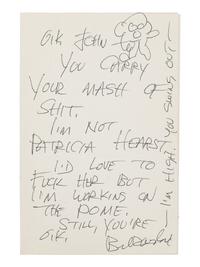 OIK JOHN
YOU CARRY
YOUR MASH OF
SHIT.
I'M NOT
PATRICIA HEARST.
I'D LOVE TO
FUCK HER BUT
I'M WORKING ON
THE POME.
STILL, YOU'RE
O.K.
I'M HIGH. YOU SWING OUT—